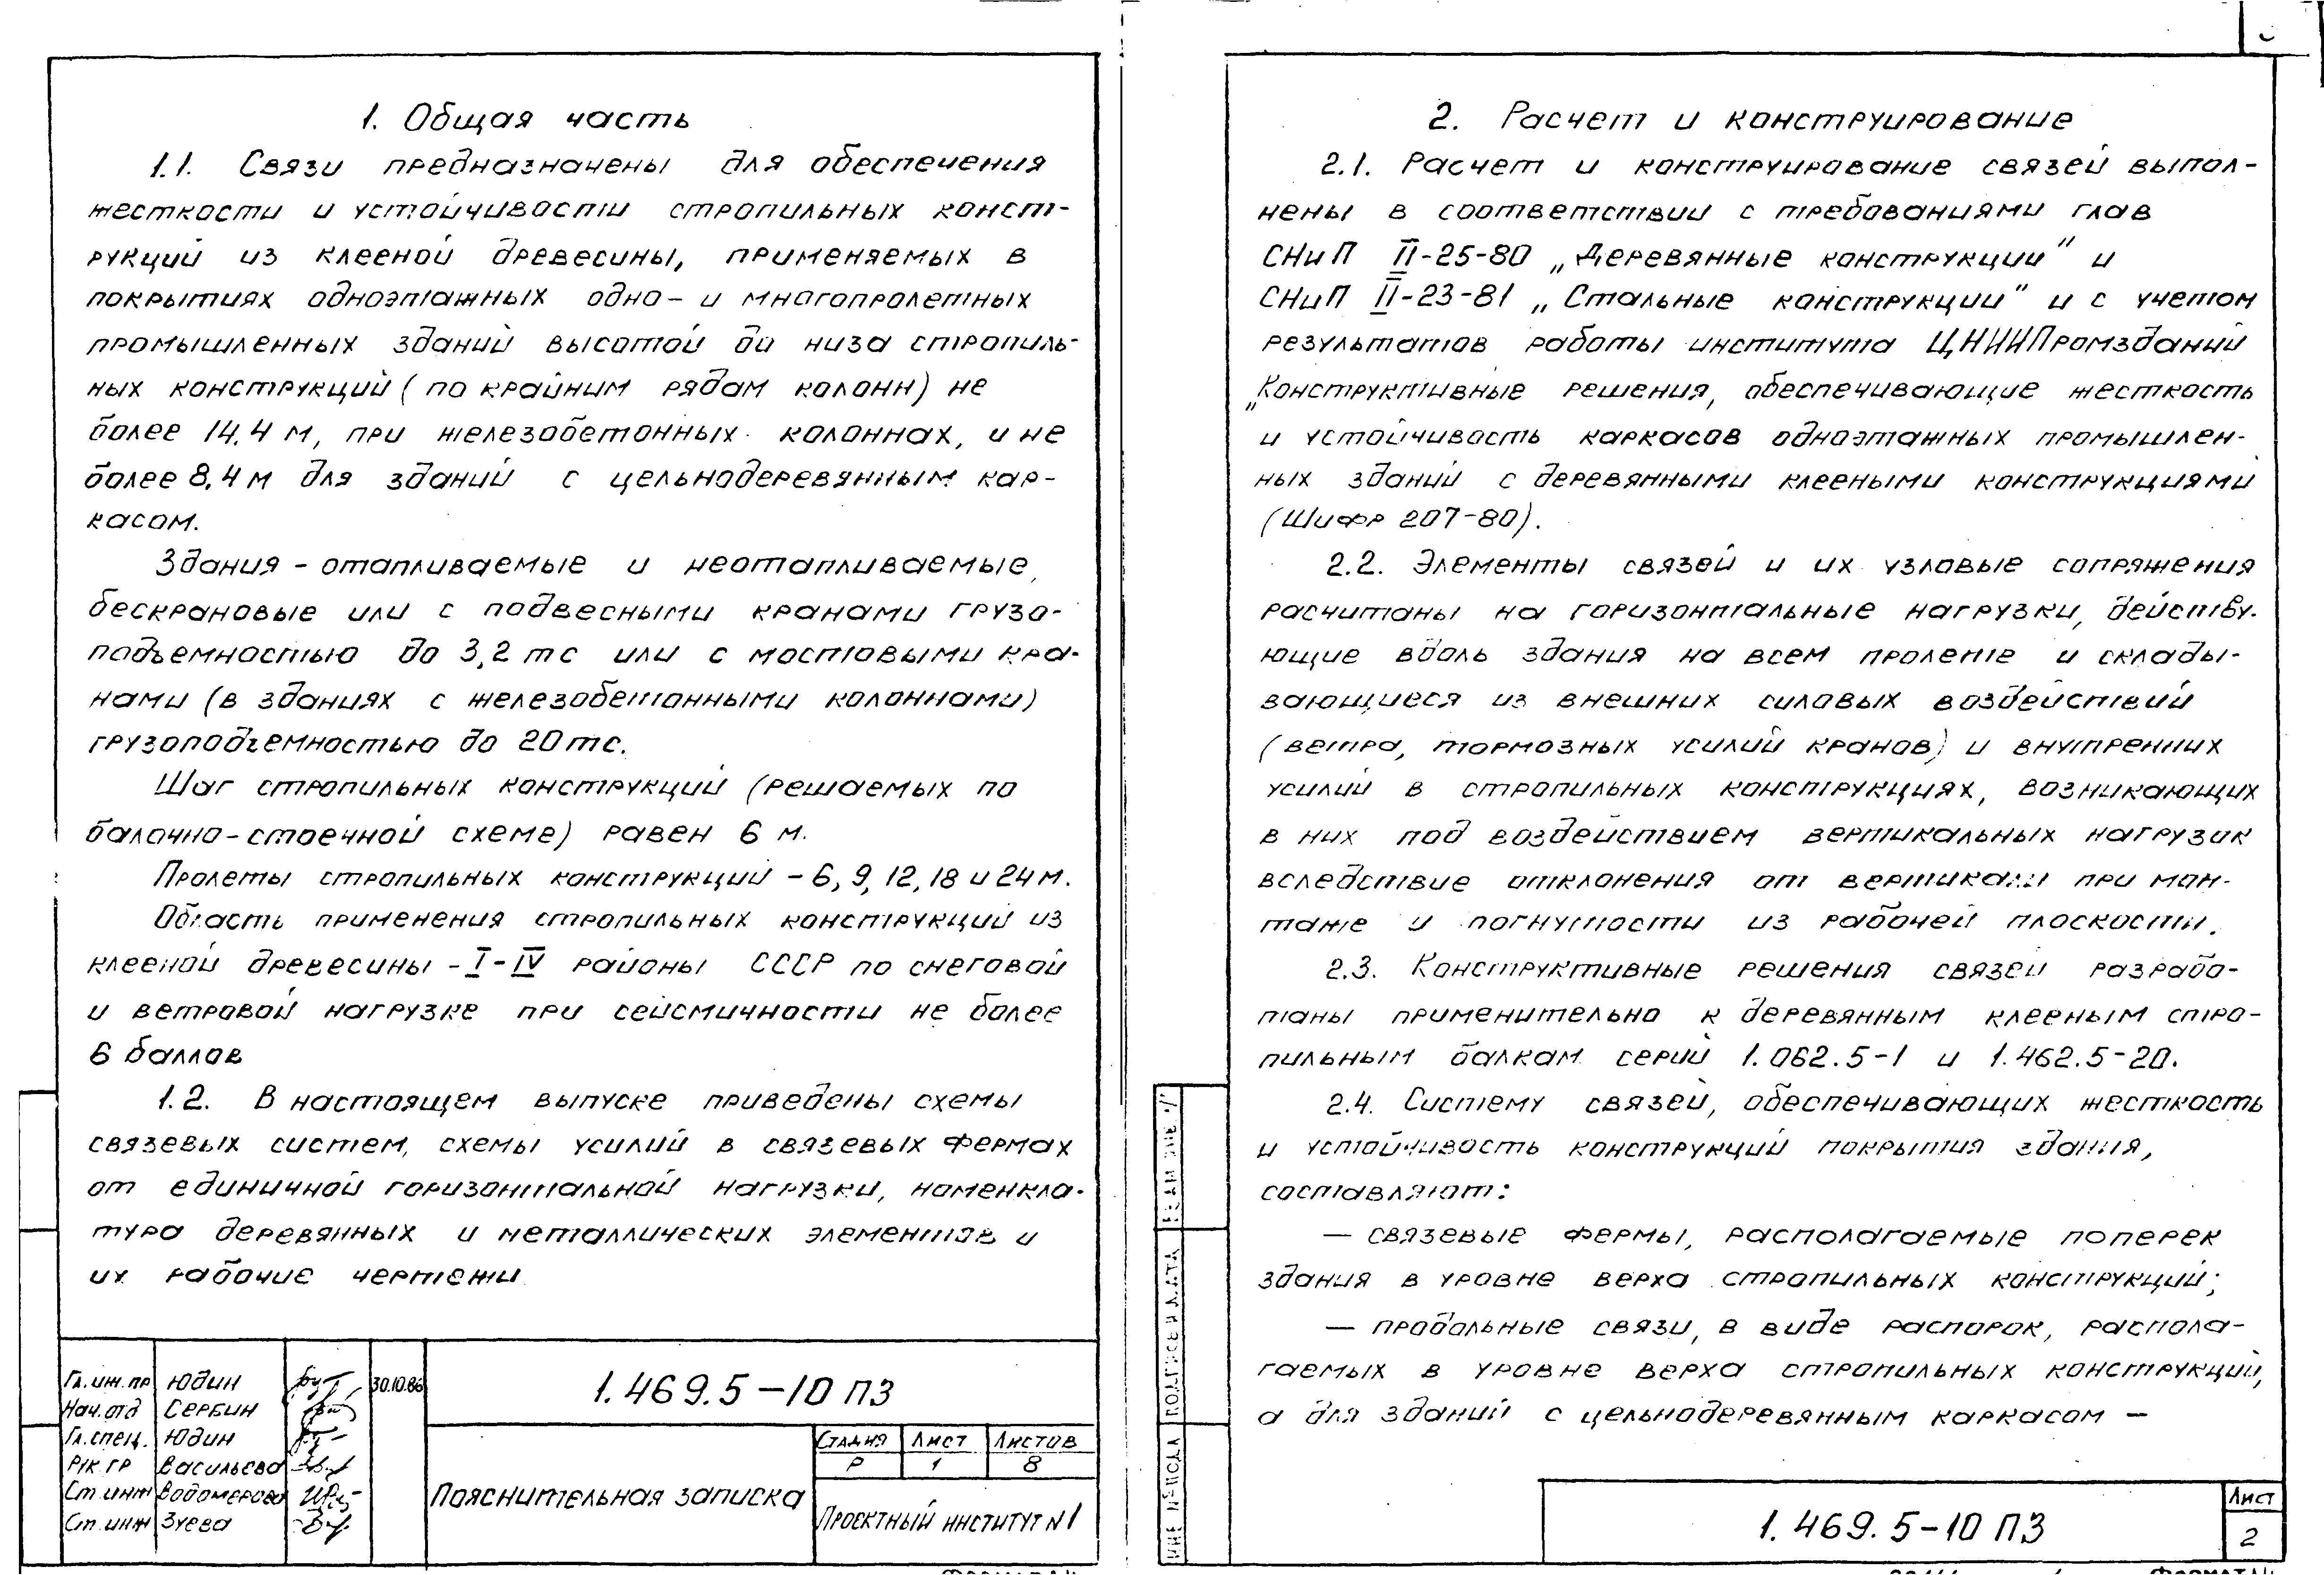 1. Общая часть
1.1. Связи предназначены для обеспечения
жесткости и устойчивости стропильных конст-
рукций из клееной древесины, применяемых в
покрытиях одноэтажных одно- и многопролетных
промышленных зданий высотой до низа стропиль-
ных конструкций (по крайним рядам колонн) не
более 14,4 м, при железобетонных колоннах, и не
более 8,4 м для зданий с цельнодеревянным кар-
касом.
Здания - отапливаемые и неотапливаемые,
бескрановые или с подвесными кранами грузо-
подъемностью до 3,2 тс или с мостовыми кра-
нами (в зданиях с железобетонными колоннами)
грузоподъемностью до 20 тс.
Шаг стропильных конструкций (решаемых по
балочно-стоечной схеме) равен 6 м.
Пролеты стропильных конструкций - 6, 9, 12, 18 и 24 м.
Область применения стропильных конструкций из
клееной древесины - I-IV районы СССР по снеговой
и ветровой нагрузке при сейсмичности не более
6 баллов
1.2. В настоящем выпуске приведены схемы
связевых систем, схемы усилий в связевых фермах
от единичной горизонтальной нагрузки, номенкла-
тура деревянных и металлических элементов и
их рабочие чертежи
Гл. инж. пр Юдин 30.10.86
Нач. отд Сербин
Гл. спец. Юдин
Рук. гр Васильева
Ст. инж Водомерова
Ст. инж Зуева
1.469.5-10 ПЗ
Пояснительная записка
Стадия Лист Листов
Р 1 8
Проектный институт N1
2. Расчет и конструирование
2.1. Расчет и конструирование связей выпол-
нены в соответствии с требованиями глав
СНиП II-25-80 „Деревянные конструкции" и
СНиП II-23-81 „Стальные конструкции" и с учетом
результатов работы института ЦНИИПромзданий
„Конструктивные решения, обеспечивающие жесткость
и устойчивость каркасов одноэтажных промышлен-
ных зданий с деревянными клееными конструкциями
(Шифр 207-80).
2.2. Элементы связей и их узловые сопряжения
расчитаны на горизонтальные нагрузки, действу-
ющие вдоль здания на всем пролете и склады-
вающиеся из внешних силовых воздействий
(ветра, тормозных усилий кранов) и внутренних
усилий в стропильных конструкциях, возникающих
в них под воздействием вертикальных нагрузок
вследствие отклонения от вертикали при мон-
таже и погнутости из рабочей плоскости.
2.3. Конструктивные решения связей разрабо-
таны применительно к деревянным клееным стро-
пильным балкам серий 1.062.5-1 и 1.462.5-20.
2.4. Систему связей, обеспечивающих жесткость
и устойчивость конструкций покрытия здания,
составляют:
— связевые фермы, располагаемые поперек
здания в уровне верха стропильных конструкций;
— продольные связи, в виде распорок, распола-
гаемых в уровне верха стропильных конструкций,
а для зданий с цельнодеревянным каркасом —
1.469.5-10 ПЗ
Лист
2